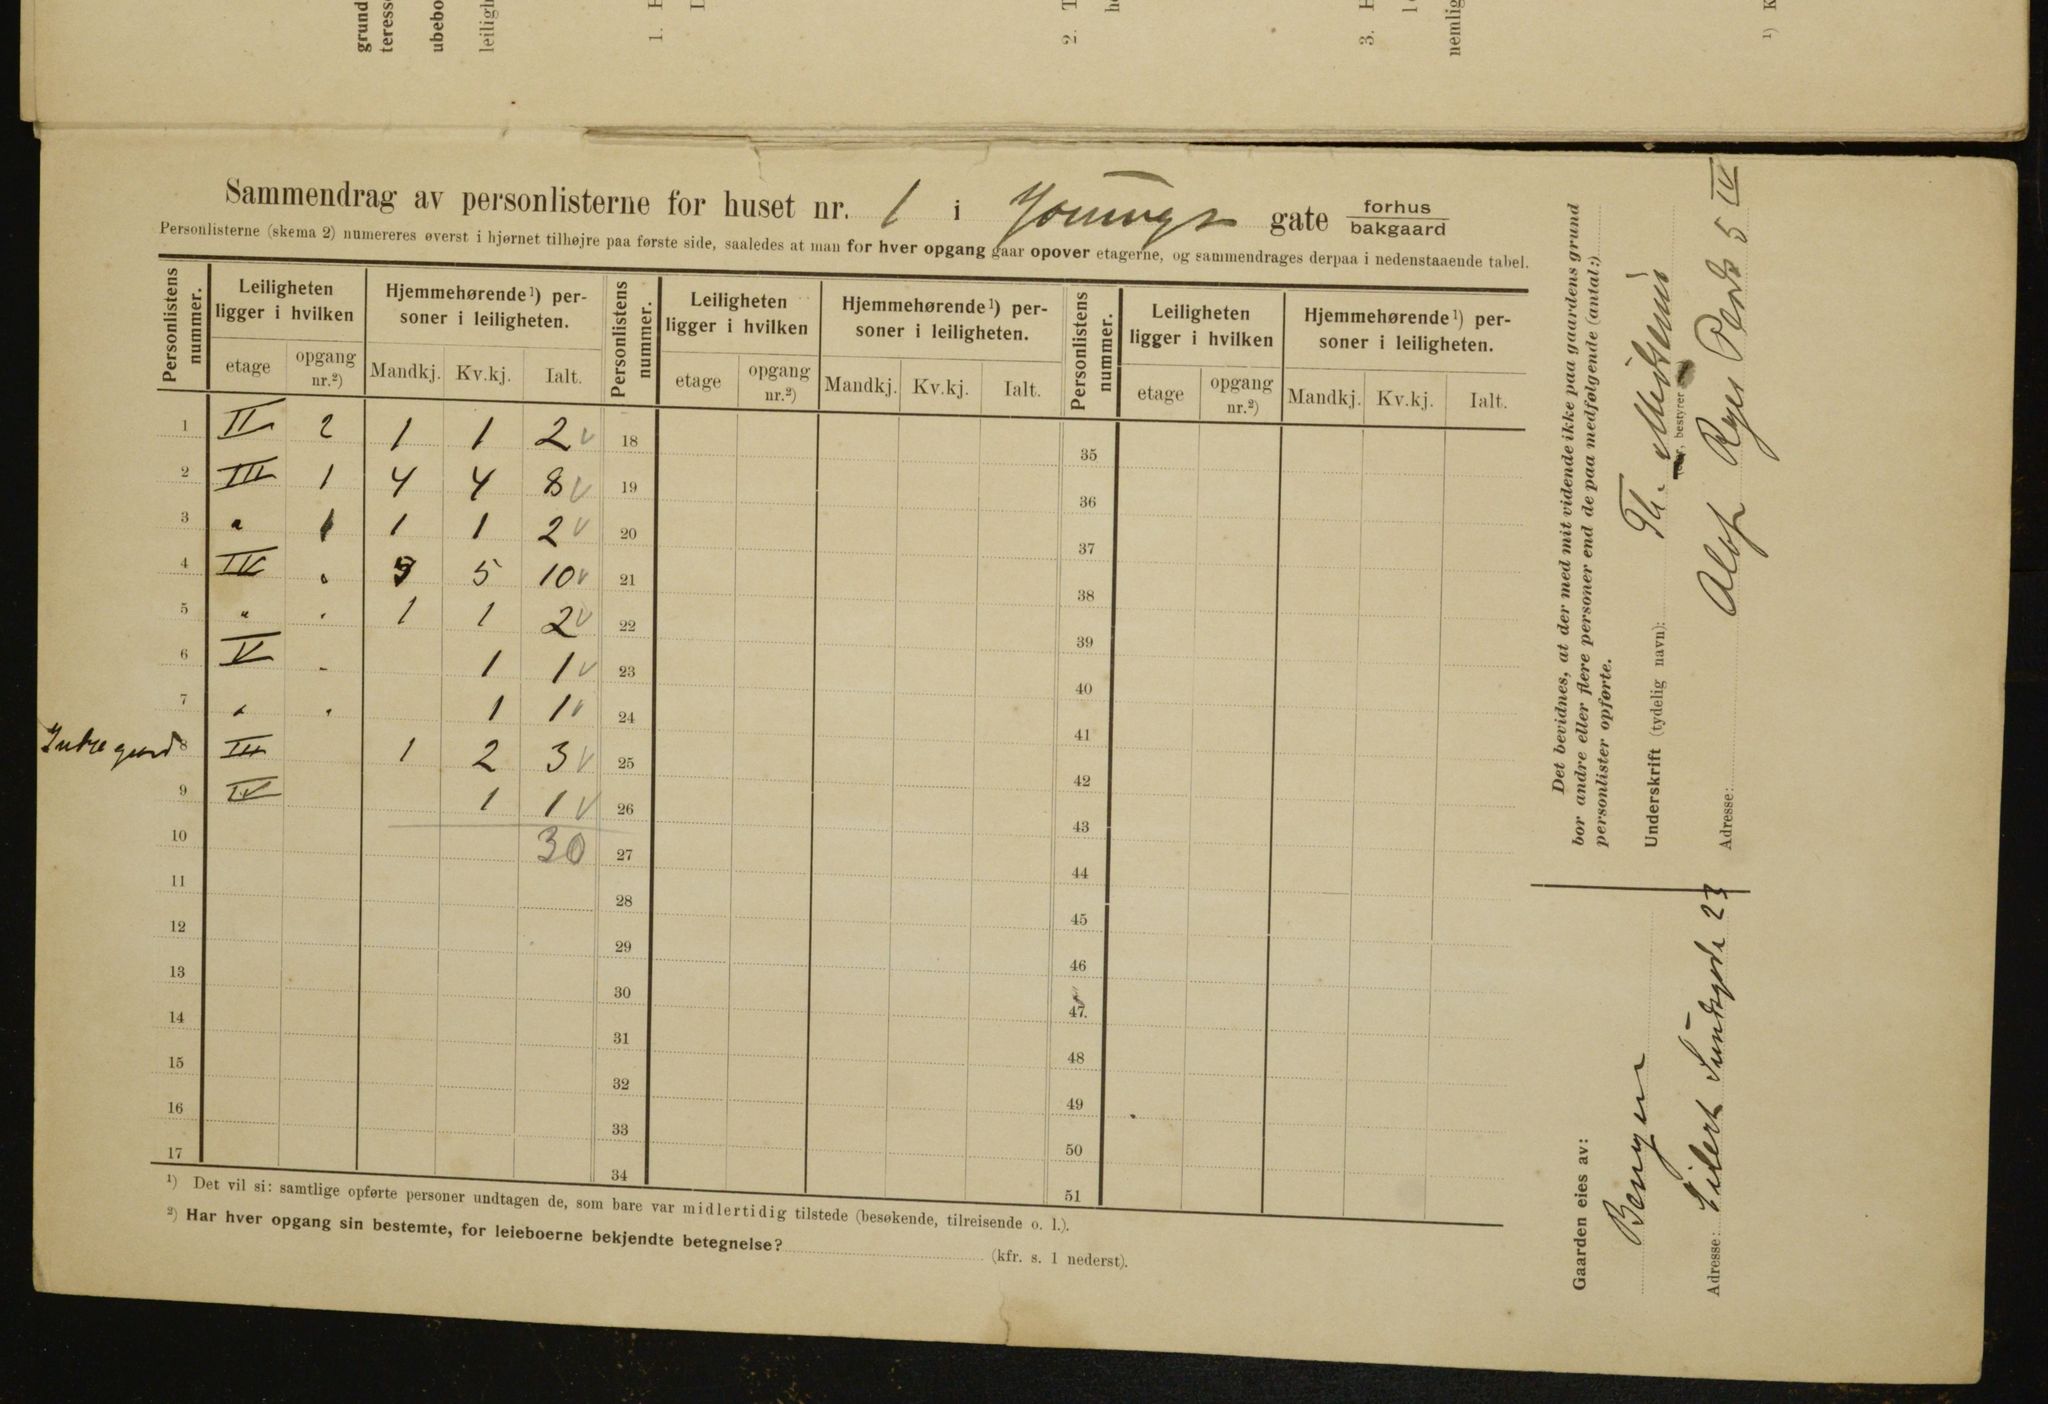 grund
teresse
ubebo
leiligh
1. H
2. T
3. H
nemlig
¹) K
Sammendrag av personlisterne for huset nr. 1 i Youngs gate forhus bakgaard
Personlisterne (skema 2) numereres øverst i hjørnet tilhøjre paa første side, saaledes at man for hver opgang gaar opover etagerne, og sammendrages derpaa i nedenstaaende tabel.
Personlistens nummer. Leiligheten ligger i hvilken Hjemmehørende¹) personer i leiligheten. Personlistens nummer. Leiligheten ligger i hvilken Hjemmehørende¹) personer i leiligheten. Personlistens nummer. Leiligheten ligger i hvilken Hjemmehørende¹) personer i leiligheten.
etage opgang nr.²) Mandkj. Kv.kj. Ialt. etage opgang nr.²) Mandkj. Kv.kj. Ialt. etage opgang nr.²) Mandkj. Kv.kj. Ialt.
1 II 2 1 1 2 √ 18 35
2 III 1 4 4 8 √ 19 36
3 " 1 1 1 2 √ 20 37
4 IV " 5 5 10 √ 21 38
5 " " 1 1 2 √ 22 39
6 V " 1 1 √ 23 40
7 " " 1 1 √ 24 41
8 III 1 2 3 √ 25 42
9 IV 1 1 √ 26 43
10 30 27 44
11 28 45
12 29 46
13 30 47.
14 31 48
15 32 49
16 33 50
17 34 51
¹) Det vil si: samtlige opførte personer undtagen de, som bare var midlertidig tilstede (besøkende, tilreisende o. l.).
²) Har hver opgang sin bestemte, for leieboerne bekjendte betegnelse? (kfr. s. 1 nederst).
Det bevidnes, at der med mit vidende ikke paa gaardens grund
bor andre eller flere personer end de paa medfølgende (antal:)
personlister opførte.
Underskrift (tydelig navn): Th.
bestyrer
Adresse: Olaf Ryes Plads 5 IV
Gaarden eies av:
Bergen
Adresse: Eilert Sundsgade 23